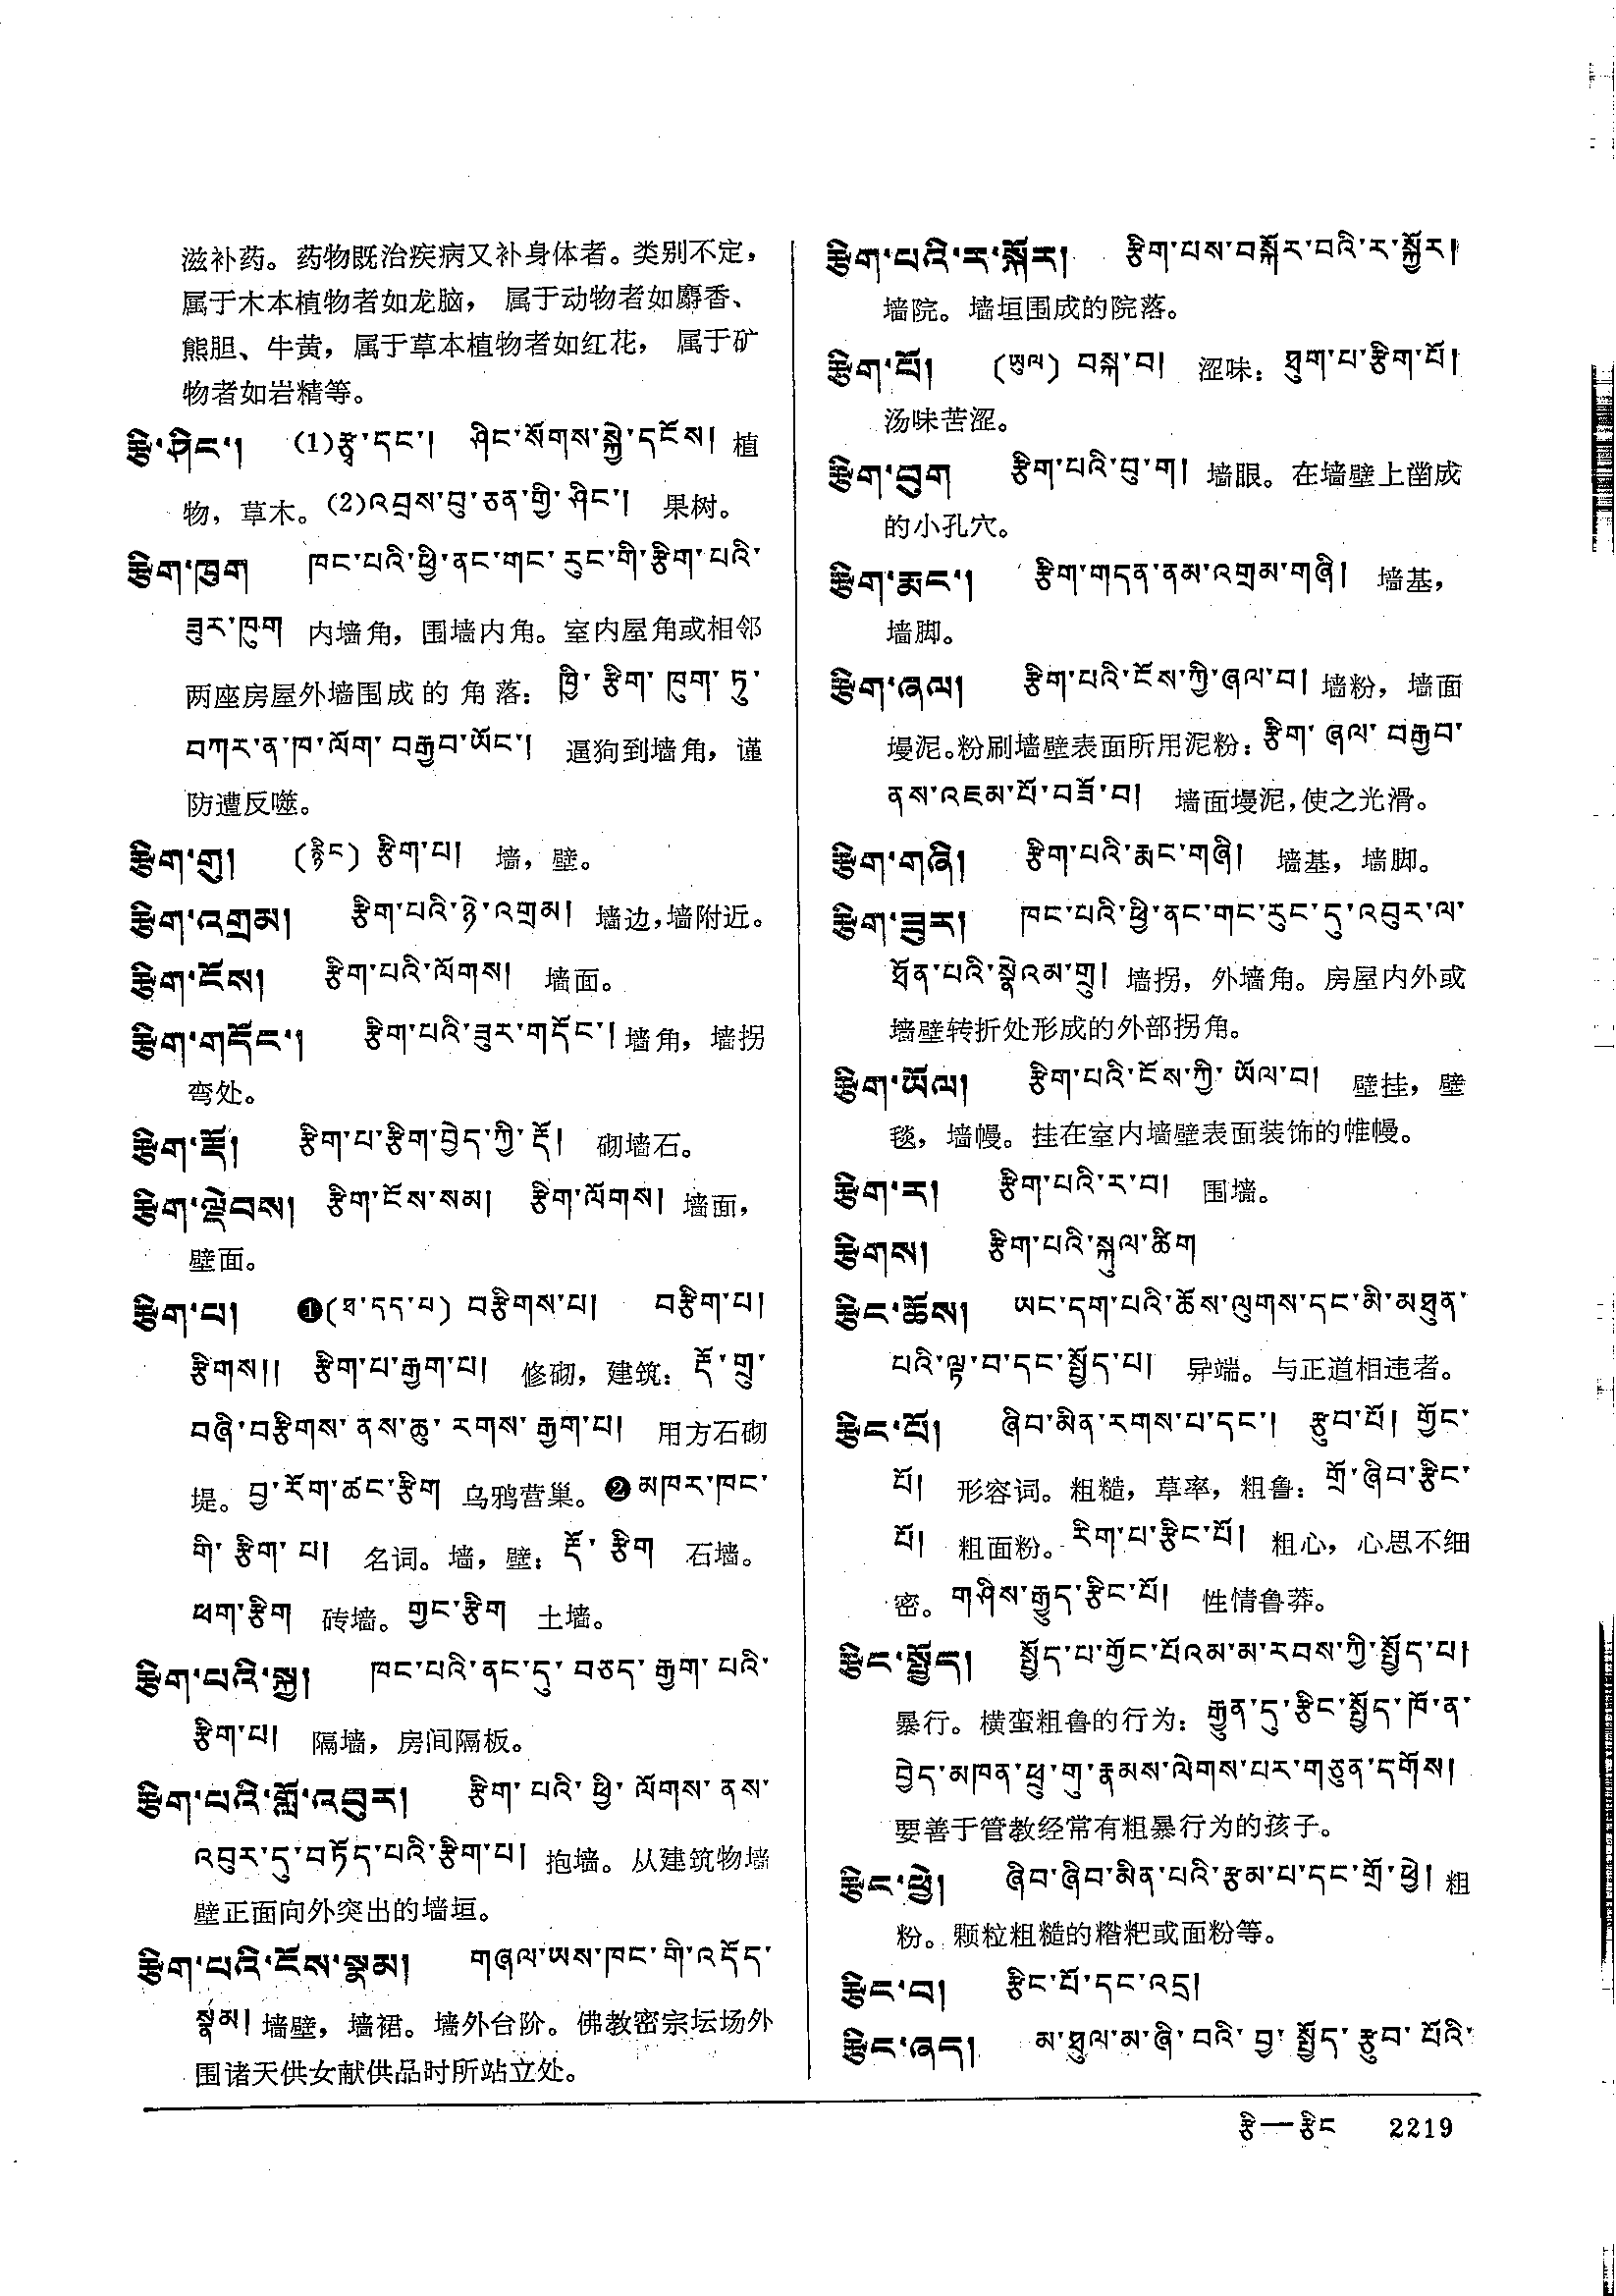 滋补药。药物既治疾病又补身体者。类别不定，
属于木本植物者如龙脑， 属于动物者如麝香、
熊胆、牛黄，属于草本植物者如红花， 属于矿
物者如岩精等。
རྩི་ཤིང་། (1)རྩྭ་དང་། ཤིང་སོགས་སྐྱེ་དངོས། 植
物，草木。(2)འབྲས་བུ་ཅན་གྱི་ཤིང་། 果树。
རྩིག་ཁུག ཁང་པའི་ཕྱི་ནང་གང་རུང་གི་རྩིག་པའི་
ཟུར་ཁུག 内墙角，围墙内角。室内屋角或相邻
两座房屋外墙围成的角落：ཁྱི་རྩིག་ཁུག་ཏུ་
བཀར་ན་ཁ་ལོག་བརྒྱབ་ཡོང་། 逼狗到墙角，谨
防遭反噬。
རྩིག་གུ། (རྙིང) རྩིག་པ། 墙，壁。
རྩིག་འགྲམ། རྩིག་པའི་ཉེ་འགྲམ། 墙边，墙附近。
རྩིག་ངོས། རྩིག་པའི་ལོགས། 墙面。
རྩིག་གདོང་། རྩིག་པའི་ཟུར་གདོང་། 墙角，墙拐
弯处。
རྩིག་རྡོ། རྩིག་པ་རྩིག་བྱེད་ཀྱི་རྡོ། 砌墙石。
རྩིག་ལྡེབས། རྩིག་ངོས་སམ། རྩིག་ལོགས། 墙面，
壁面。
རྩིག་པ། ❶(ཐ་དད་པ) བརྩིགས་པ། བརྩིག་པ།
རྩིགས།། རྩིག་པ་རྒྱག་པ། 修砌，建筑：རྡོ་གྲུ་
བཞི་བརྩིགས་ནས་ཆུ་རགས་རྒྱག་པ། 用方石砌
堤。བྱ་རོག་ཚང་རྩིག 乌鸦营巢。❷མཁར་ཁང་
གི་རྩིག་པ། 名词。墙，壁：རྡོ་རྩིག 石墙。
ཕག་རྩིག 砖墙。གྱང་རྩིག 土墙。
རྩིག་པའི་སྐྱ། ཁང་པའི་ནང་དུ་བཅད་རྒྱག་པའི་
རྩིག་པ། 隔墙，房间隔板。
རྩིག་པའི་གློ་འབུར། རྩིག་པའི་ཕྱི་ལོགས་ནས་
འབུར་དུ་བཏོད་པའི་རྩིག་པ། 抱墙。从建筑物墙
壁正面向外突出的墙垣。
རྩིག་པའི་ངོས་སྣམ། གཞལ་ཡས་ཁང་གི་འདོད་
སྣམ། 墙壁，墙裙。墙外台阶。佛教密宗坛场外
围诸天供女献供品时所站立处。
རྩིག་པའི་ར་སྐོར། རྩིག་པས་བསྐོར་བའི་ར་སྐྱོར།
墙院。墙垣围成的院落。
རྩིག་པོ། (ཡུལ) བསྐ་བ། 涩味：ཐུག་པ་རྩིག་པོ།
汤味苦涩。
རྩིག་བུག རྩིག་པའི་བུ་ག། 墙眼。在墙壁上凿成
的小孔穴。
རྩིག་རྨང་། རྩིག་གདན་ནམ་འགྲམ་གཞི། 墙基，
墙脚。
རྩིག་ཞལ། རྩིག་པའི་ངོས་ཀྱི་ཞལ་བ། 墙粉，墙面
墁泥。粉刷墙壁表面所用泥粉：རྩིག་ཞལ་བརྒྱབ་
ནས་འཇམ་པོ་བཟོ་བ། 墙面墁泥，使之光滑。
རྩིག་གཞི། རྩིག་པའི་རྨང་གཞི། 墙基，墙脚。
རྩིག་ཟུར། ཁང་པའི་ཕྱི་ནང་གང་རུང་དུ་འབུར་ལ་
ཐོན་པའི་སྣེའམ་གྲུ། 墙拐，外墙角。房屋内外或
墙壁转折处形成的外部拐角。
རྩིག་ཡོལ། རྩིག་པའི་ངོས་ཀྱི་ཡོལ་བ། 壁挂，壁
毯，墙幔。挂在室内墙壁表面装饰的帷幔。
རྩིག་ར། རྩིག་པའི་ར་བ། 围墙。
རྩིགས། རྩིག་པའི་སྐུལ་ཚིག
རྩིང་ཆོས། ཡང་དག་པའི་ཆོས་ལུགས་དང་མི་མཐུན་
པའི་ལྟ་བ་དང་སྤྱོད་པ། 异端。与正道相违者。
རྩིང་པོ། ཞིབ་མིན་རགས་པ་དང་། རྩུབ་པོ། གྱོང་
པོ། 形容词。粗糙，草率，粗鲁：གྲོ་ཞིབ་རྩིང་
པོ། 粗面粉。རིག་པ་རྩིང་པོ། 粗心，心思不细
密。གཤིས་རྒྱུད་རྩིང་པོ། 性情鲁莽。
རྩིང་སྤྱོད། སྤྱོད་པ་གྱོང་པོའམ་མ་རབས་ཀྱི་སྤྱོད་པ།
暴行。横蛮粗鲁的行为：རྒྱུན་དུ་རྩིང་སྤྱོད་ཁོ་ན་
བྱེད་མཁན་ཕྲུ་གུ་རྣམས་ལེགས་པར་གཅུན་དགོས།
要善于管教经常有粗暴行为的孩子。
རྩིང་ཕྱེ། ཞིབ་ཞིབ་མིན་པའི་རྩམ་པ་དང་གྲོ་ཕྱེ། 粗
粉。颗粒粗糙的糌粑或面粉等。
རྩིང་བ། རྩིང་པོ་དང་འདྲ།
རྩིང་ཞད། མ་ཐུལ་མ་ཞི་བའི་བྱ་སྤྱོད་རྩུབ་པོའི་
རྩི—རྩིང 2219